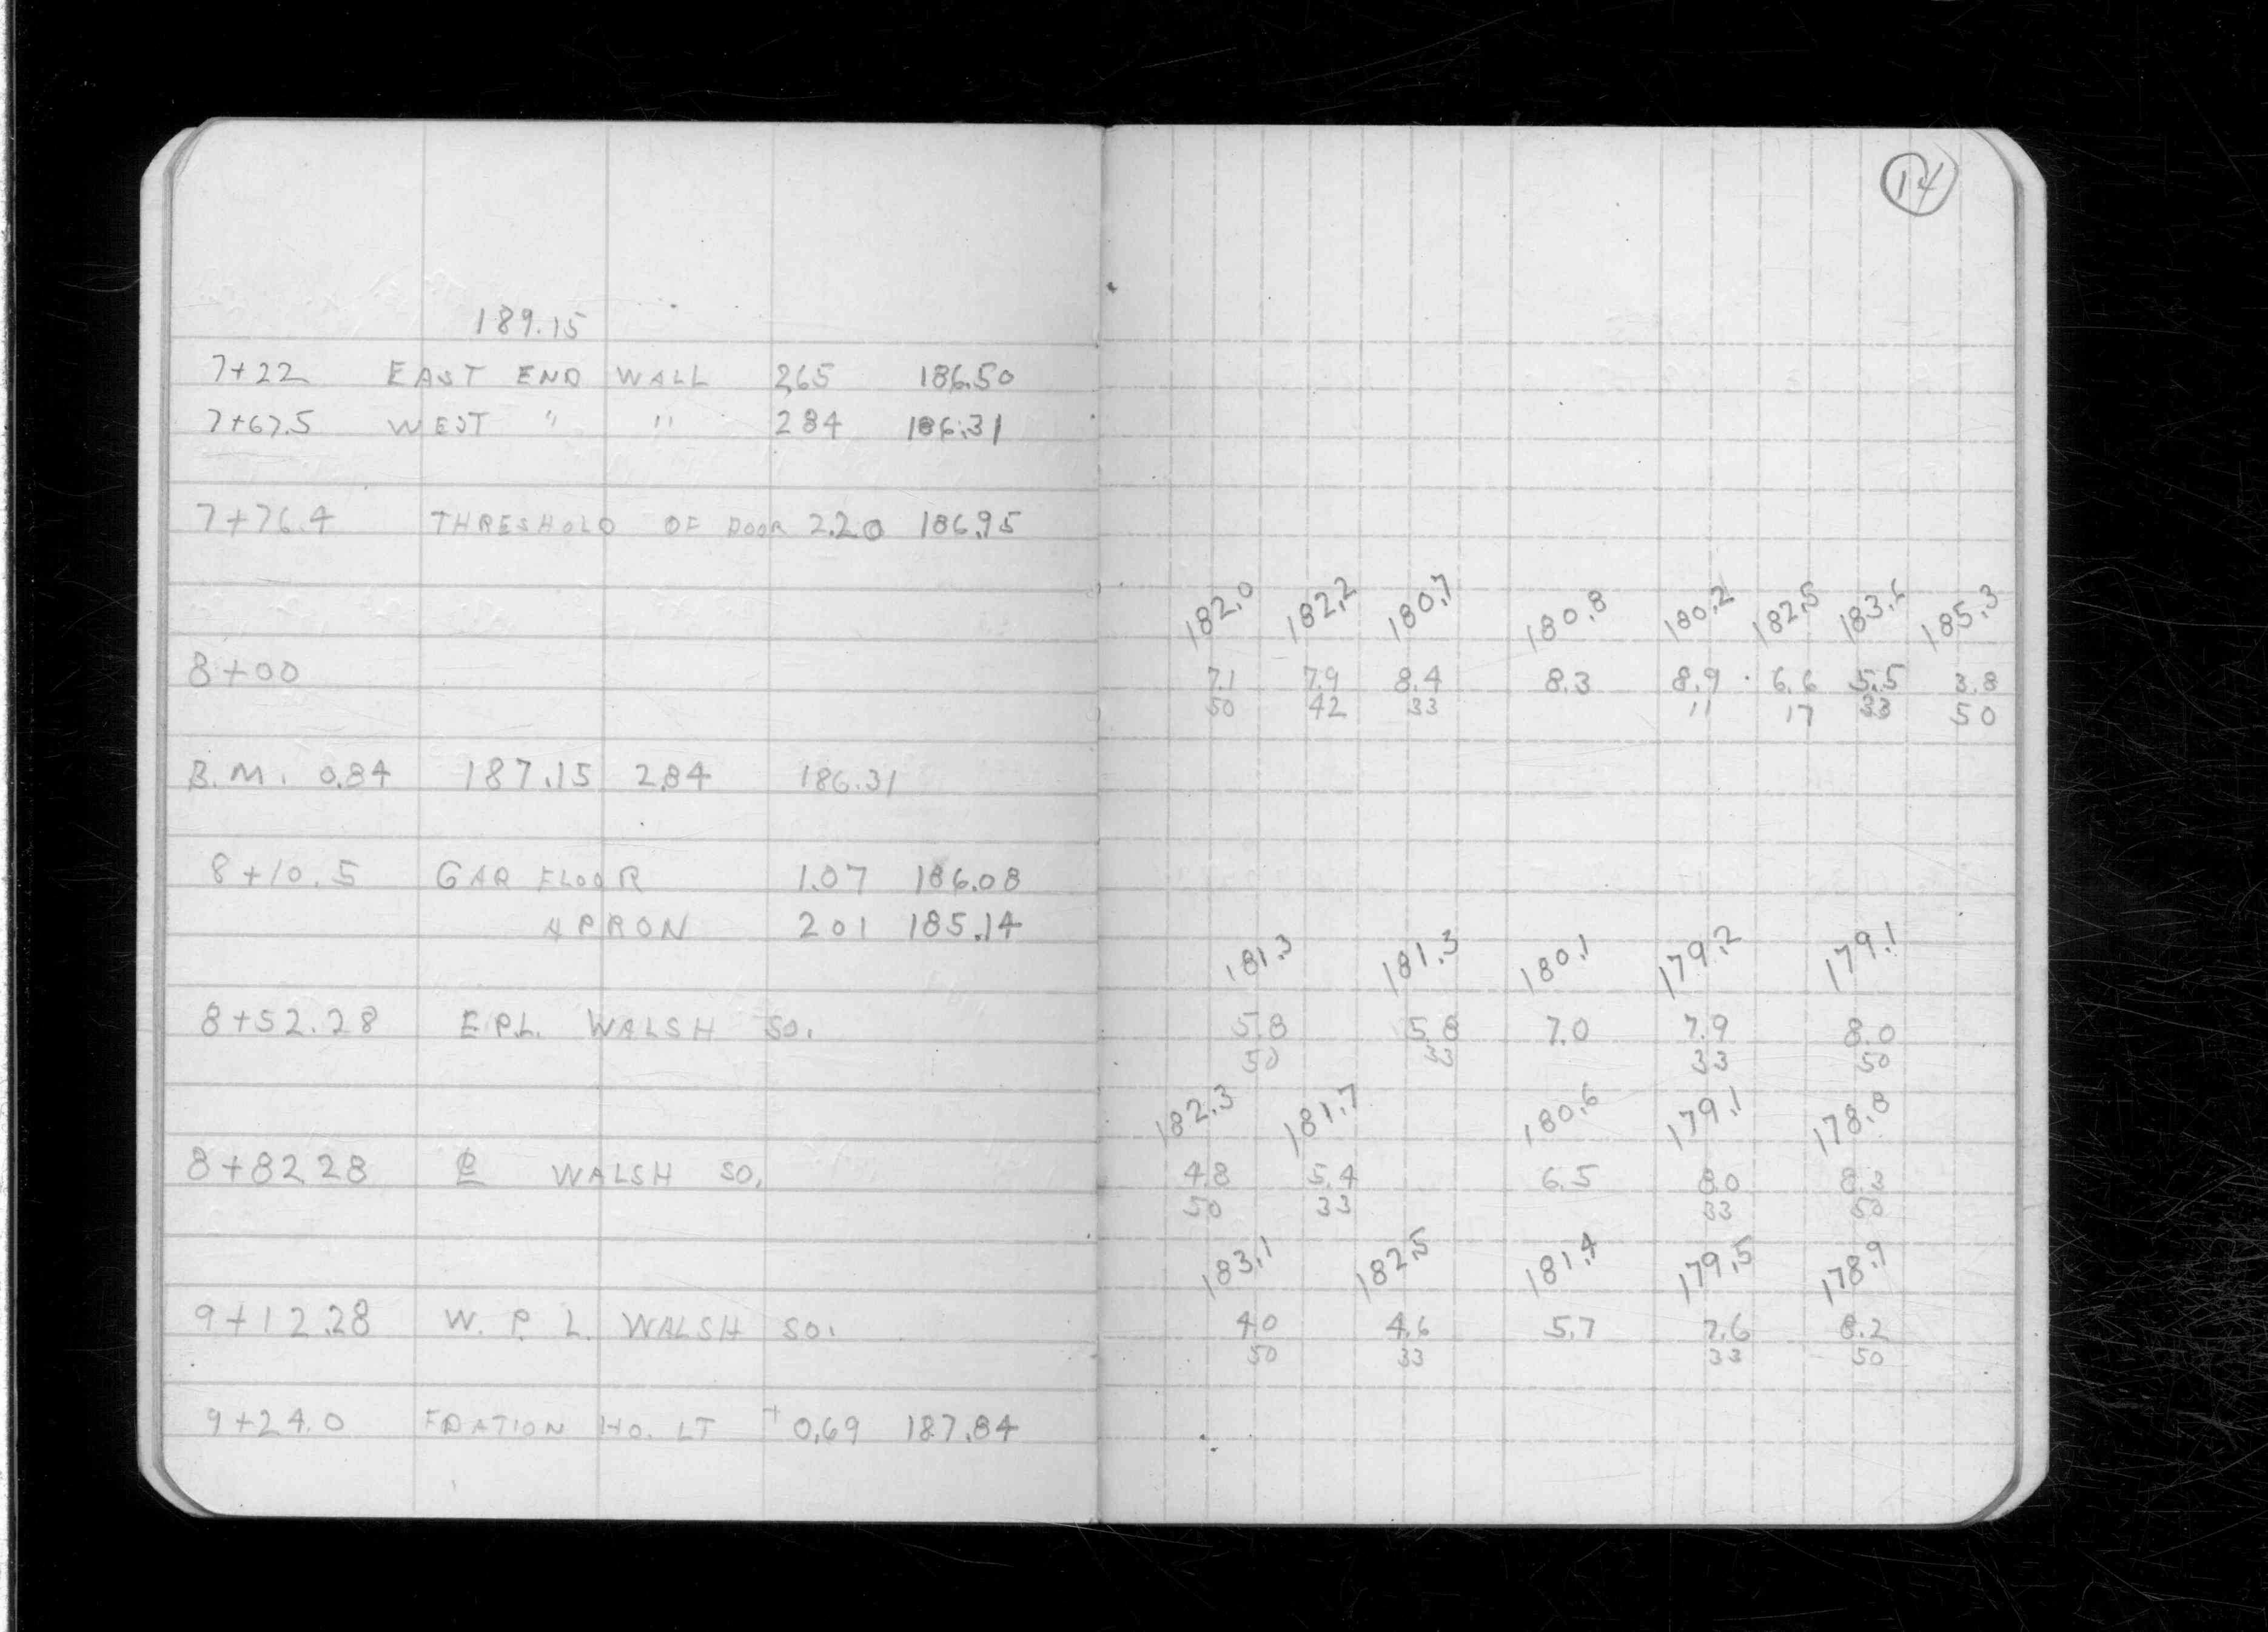 189.15
7+22 EAST END WALL 2.65 186.50
7+67.5 WEST " " 284 186.31
7+76.4 THRESHOLD OF DOOR 2.20 186.95
8+00
B.M. 0.84 187.15 2.84 186.31
8+10.5 GAR FLOOR 1.07 186.08
APRON 201 185.14
8+52.28 E.P.L. WALSH SO.
8+8228 ℄ WALSH SO.
9+12.28 W. P. L. WALSH SO.
9+24.0 FDATION HO. LT +0.69 187.84
14
182.0 182.2 180.7 180.8 180.2 182.5 183.6 185.3
7.1 7.9 8.4 8.3 8.9 6.6 5.5 3.8
50 42 33 11 17 33 50
181.3 181.3 180.1 179.2 179.1
5.8 5.8 7.0 7.9 8.0
50 33 33 50
182.3 181.7 180.6 179.1 178.8
4.8 5.4 6.5 8.0 8.3
50 33 33 50
183.1 182.5 181.4 179.5 178.9
4.0 4.6 5.7 7.6 8.2
50 33 33 50